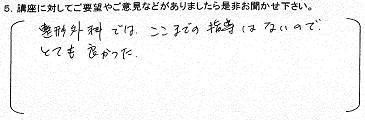 5. 講座に対してご要望やご意見などがありましたら是非お聞かせ下さい。
整形外科では ここまでの指導はないので、
とても良かった。